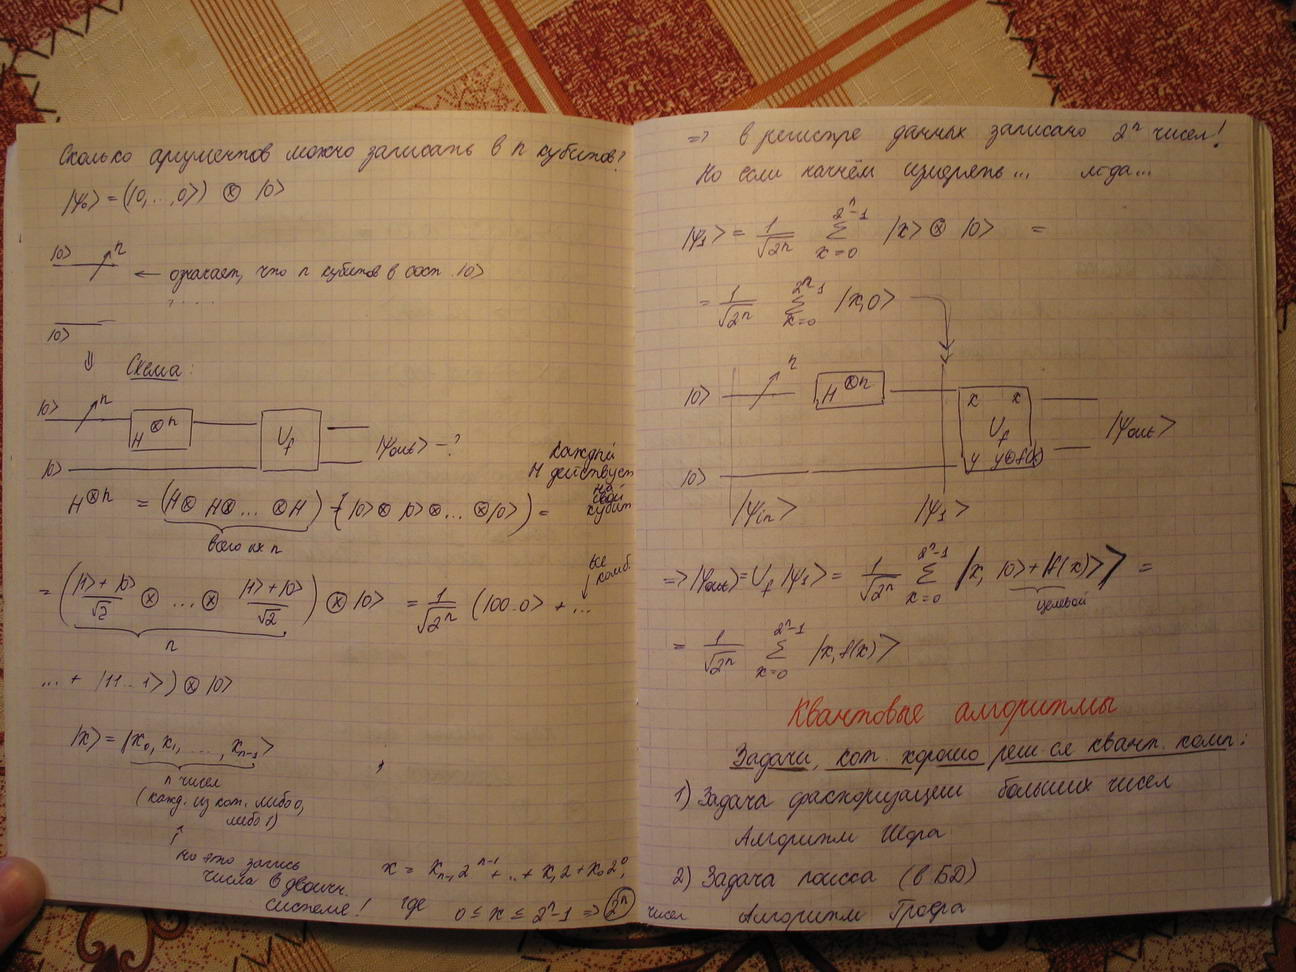 Сколько аргументов можно записать в n кубитов?
|ψ₀> = (|0,...,0>) ⊗ |0>
|0> n
← означает, что n кубитов в сост. |0>
|0>
⇓ Схема:
|0> n H^⊗n U_f |ψout> – ?
|0>
каждый H действует на свой кубит
H^⊗n = (H⊗H⊗...⊗H) · (|0>⊗|0>⊗...⊗|0>) =
всего их n
= ((|1>+|0>)/√2 ⊗ ... ⊗ (|1>+|0>)/√2) ⊗ |0> = 1/√2ⁿ (|00..0> + ...
n
все комб.
... + |11...1>) ⊗ |0>
|x> = |x₀, x₁, ..., xₙ₋₁>
n чисел
(кажд. из кот. либо 0,
либо 1)
↑
но это запись
числа в двоичн.
системе!
x = xₙ₋₁2ⁿ⁻¹ + ... + x₁2 + x₀2⁰,
где 0 ≤ x ≤ 2ⁿ-1 ⇒ 2ⁿ чисел
⇒ в регистре данных записано 2ⁿ чисел!
Но если начнём измерять...
|ψ₁> = 1/√2ⁿ Σ_{x=0}^{2ⁿ-1} |x> ⊗ |0> =
= 1/√2ⁿ Σ_{x=0}^{2ⁿ-1} |x,0>
|0> n H^⊗n x x
U_f |ψout>
|0> y y⊕f(x)
|ψin> |ψ₁>
⇒ |ψout> = U_f |ψ₁> = 1/√2ⁿ Σ_{x=0}^{2ⁿ-1} |x, |0> + |f(x)>> =
целевой
= 1/√2ⁿ Σ_{x=0}^{2ⁿ-1} |x, f(x)>
Квантовые алгоритмы
Задачи, кот. хорошо реш-ся квант. комп:
1) Задача факторизации больших чисел
Алгоритм Шора
2) Задача поиска (в БД)
Алгоритм Гровера